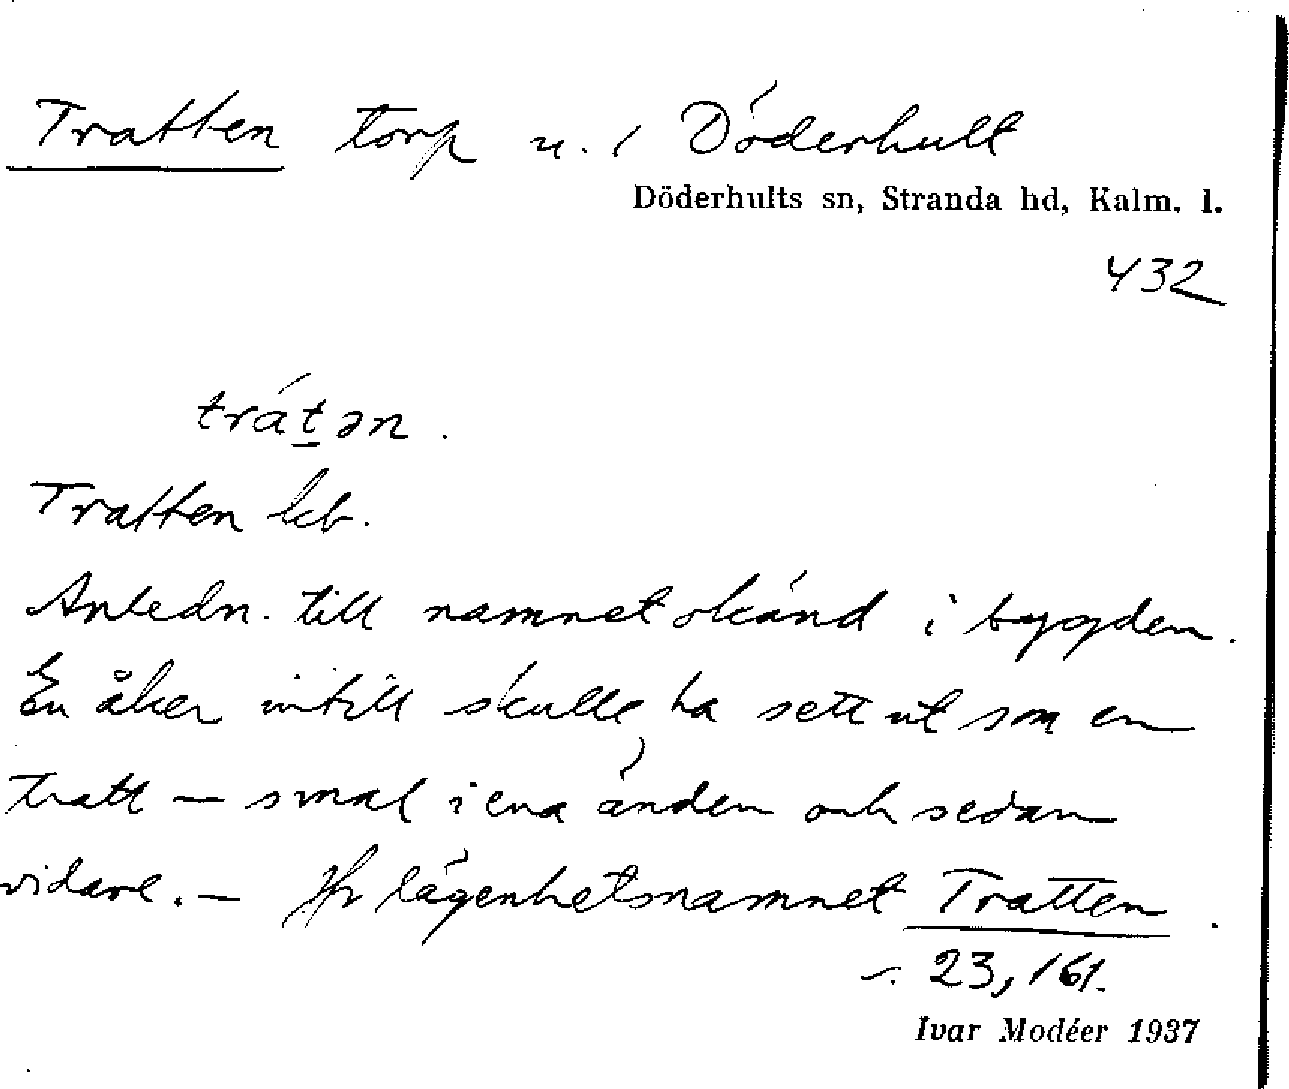 Tratten torp u. Döderhult
Döderhults sn, Stranda hd, Kalm. l.
432
trát̲ən.
Tratten kb.
Anledn. till namnet okänd i bygden.
En åker intill skulle ha sett ut som en
tratt — smal i ena änden och sedan
vidare. — Jfr lägenhetsnamnet Tratten.
s. 23, 161.
Ivar Modéer 1937